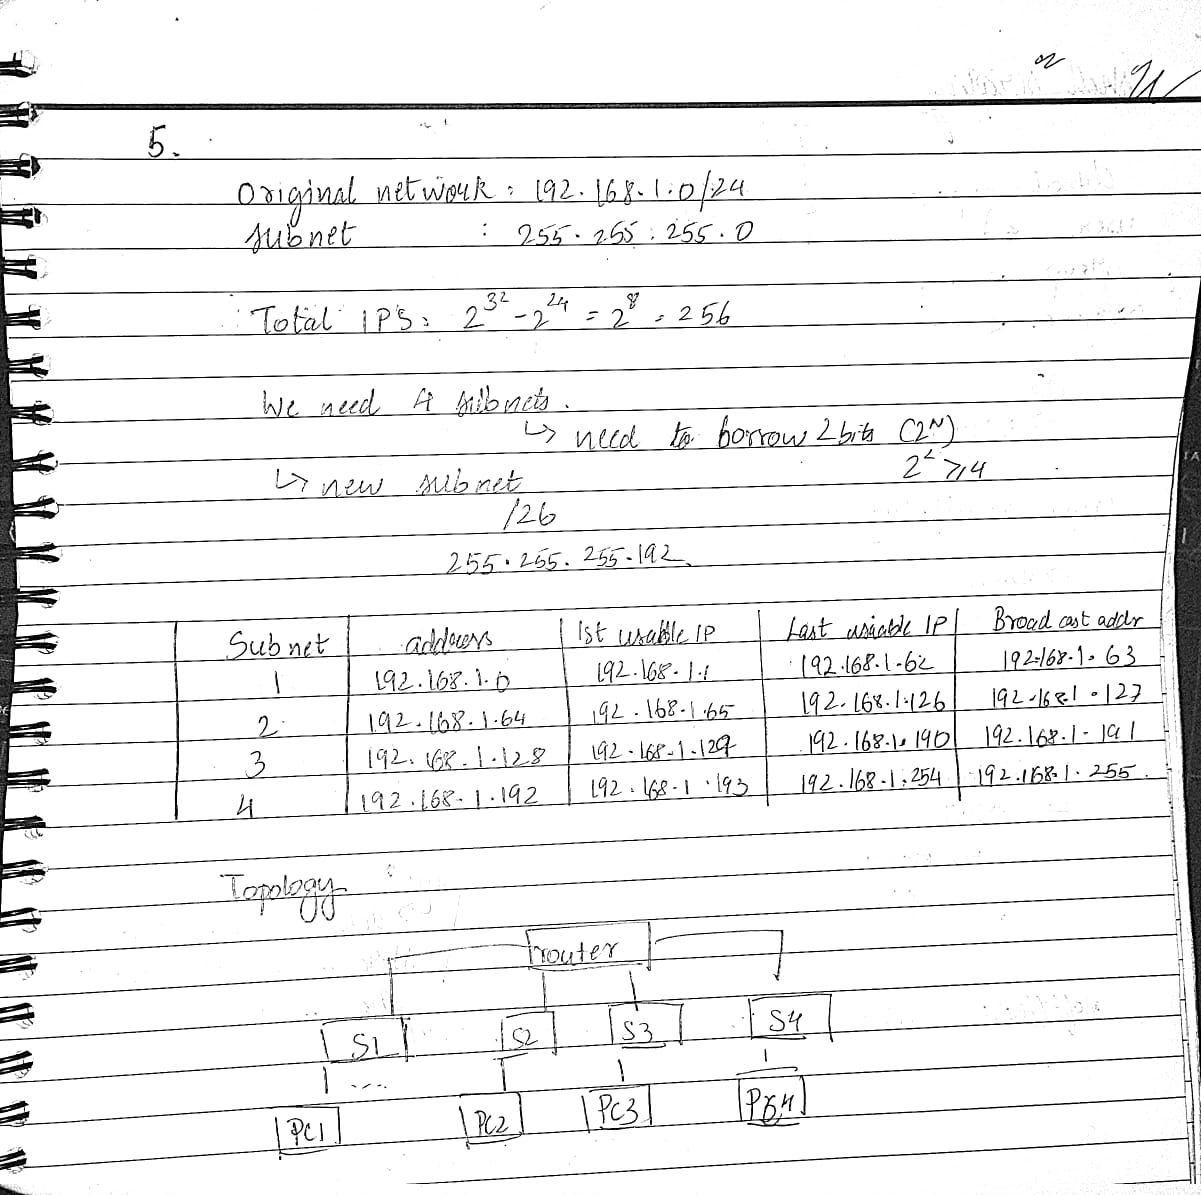 5.
Original network : 192.168.1.0/24
subnet : 255.255.255.0
Total IPS: 2^32 - 2^24 = 2^8 = 256
We need 4 subnets.
↳ need to borrow 2 bits (2^N)
2^2 ≥ 4
↳ new subnet
/26
255.255.255.192
Subnet address 1st usable IP Last usable IP Broad cast addr
1 192.168.1.0 192.168.1.1 192.168.1.62 192.168.1.63
2 192.168.1.64 192.168.1.65 192.168.1.126 192.168.1.127
3 192.168.1.128 192.168.1.129 192.168.1.190 192.168.1.191
4 192.168.1.192 192.168.1.193 192.168.1.254 192.168.1.255
Topology
router
S1 S2 S3 S4
....
PC1 PC2 PC3 PC4